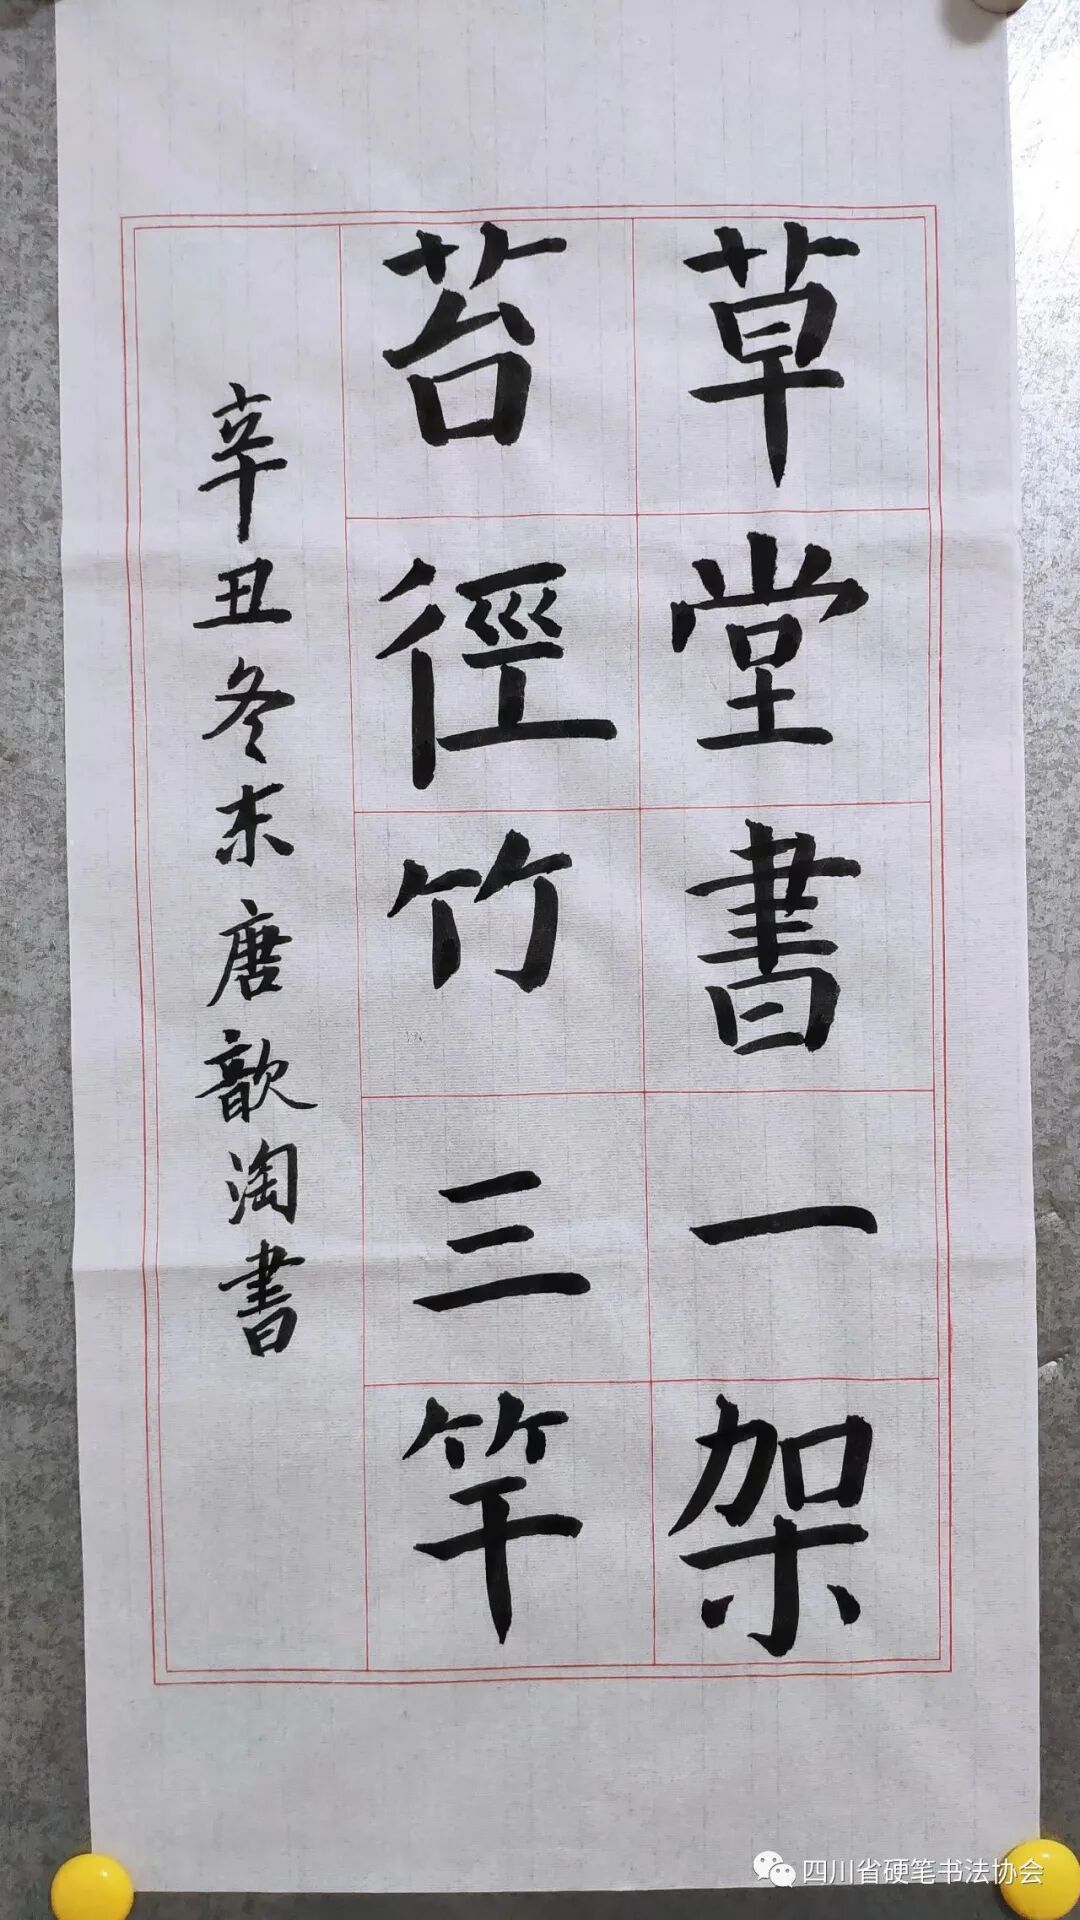 草堂書一架
苔徑竹三竿
辛丑冬末唐歆淘書
四川省硬笔书法协会